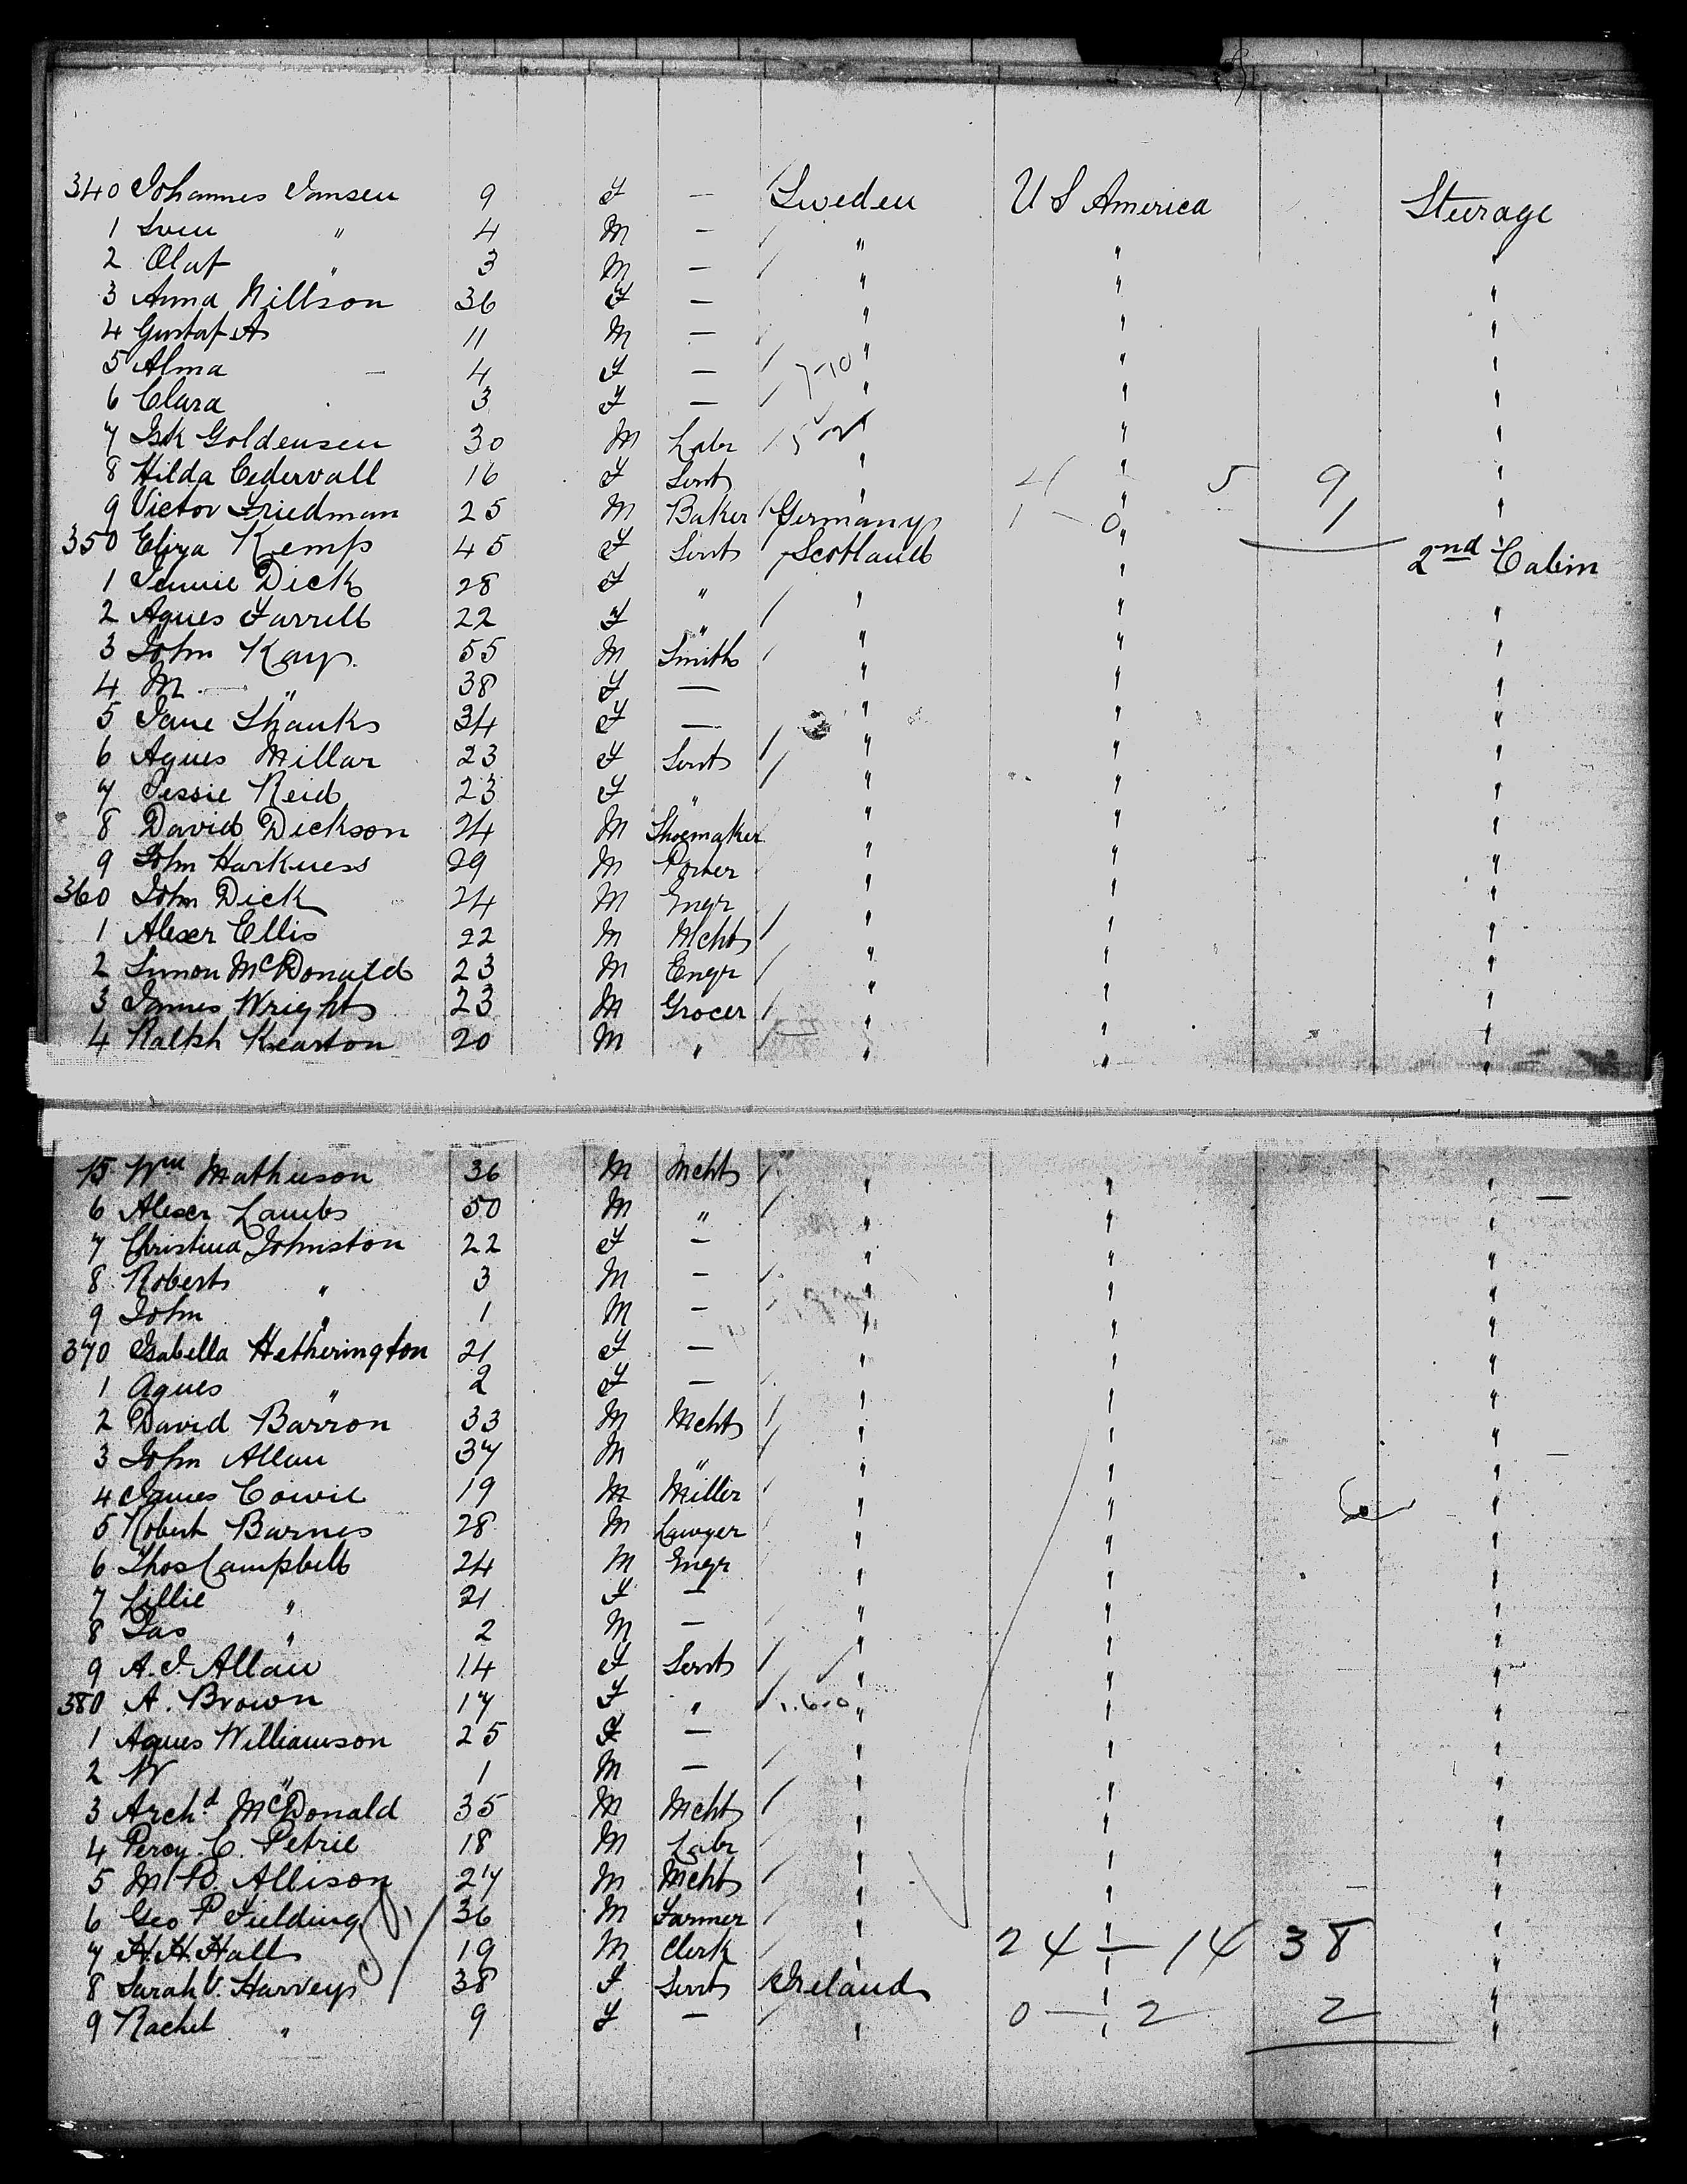 340 Johannes Jansen 9 F — Sweden U S America Steerage
1 Sven " 4 M — " " "
2 Olaf " 3 M — " " "
3 Anna Nillson 36 F — " " "
4 Gustaf A 11 M — " " "
5 Alma 4 F — " " "
6 Clara 3 F — " " "
7 Isk Goldensen 30 M Labr " " "
8 Hilda Cedervall 16 F Servt " " 5 9 "
9 Victor Friedman 25 M Baker Germany 1 — 0 " 1 "
350 Eliza Kemp 45 F Servt Scotland " 2nd Cabin
1 Jennie Dick 28 F " " " "
2 Agnes Farrell 22 F " " " "
3 John Kay 55 M Smith " " "
4 M " 38 F — " " "
5 Jane Shanks 34 F — " " "
6 Agnes Millar 23 F Servt " " "
7 Jessie Reid 23 F " " " "
8 David Dickson 24 M Shoemaker " " "
9 John Harkness 29 M Porter " " "
360 John Dick 24 M Engr " " "
1 Alexr Ellis 22 M Mcht " " "
2 Simon McDonald 23 M Engr " " "
3 James Wright 23 M Grocer " " "
4 Ralph Kearton 20 M " " " "
15 Wm Mathieson 36 M Mcht " " "
6 Alexr Lamb 50 M " " " "
7 Christina Johnston 22 F — " " "
8 Robert " 3 M — " " "
9 John " 1 M — " " "
370 Isabella Hetherington 21 F — " " "
1 Agnes " 2 F — " " "
2 David Barron 33 M Mcht " " "
3 John Allan 37 M " " " "
4 James Cowie 19 M Miller " " "
5 Robert Barnes 28 M Lawyer " " "
6 Thos Campbell 24 M Engr " " "
7 Lillie " 21 F — " " "
8 Jas " 2 M — " " "
9 A. J. Allan 14 F Servt " " "
380 A. Brown 17 F " 1.6.0 " " "
1 Agnes Williamson 25 F — " " "
2 W " 1 M — " " "
3 Archd McDonald 35 M Mcht " " "
4 Percy C. Petrie 18 M Labr " " "
5 M B. Allison 27 M Mcht " " "
6 Geo P Fielding 36 M Farmer " " "
7 H. H. Hall 19 M Clerk " 24 — 14 38 "
8 Sarah V. Harvey 38 F Servt Ireland " "
9 Rachel " 9 F — " 0 — 2 2 "